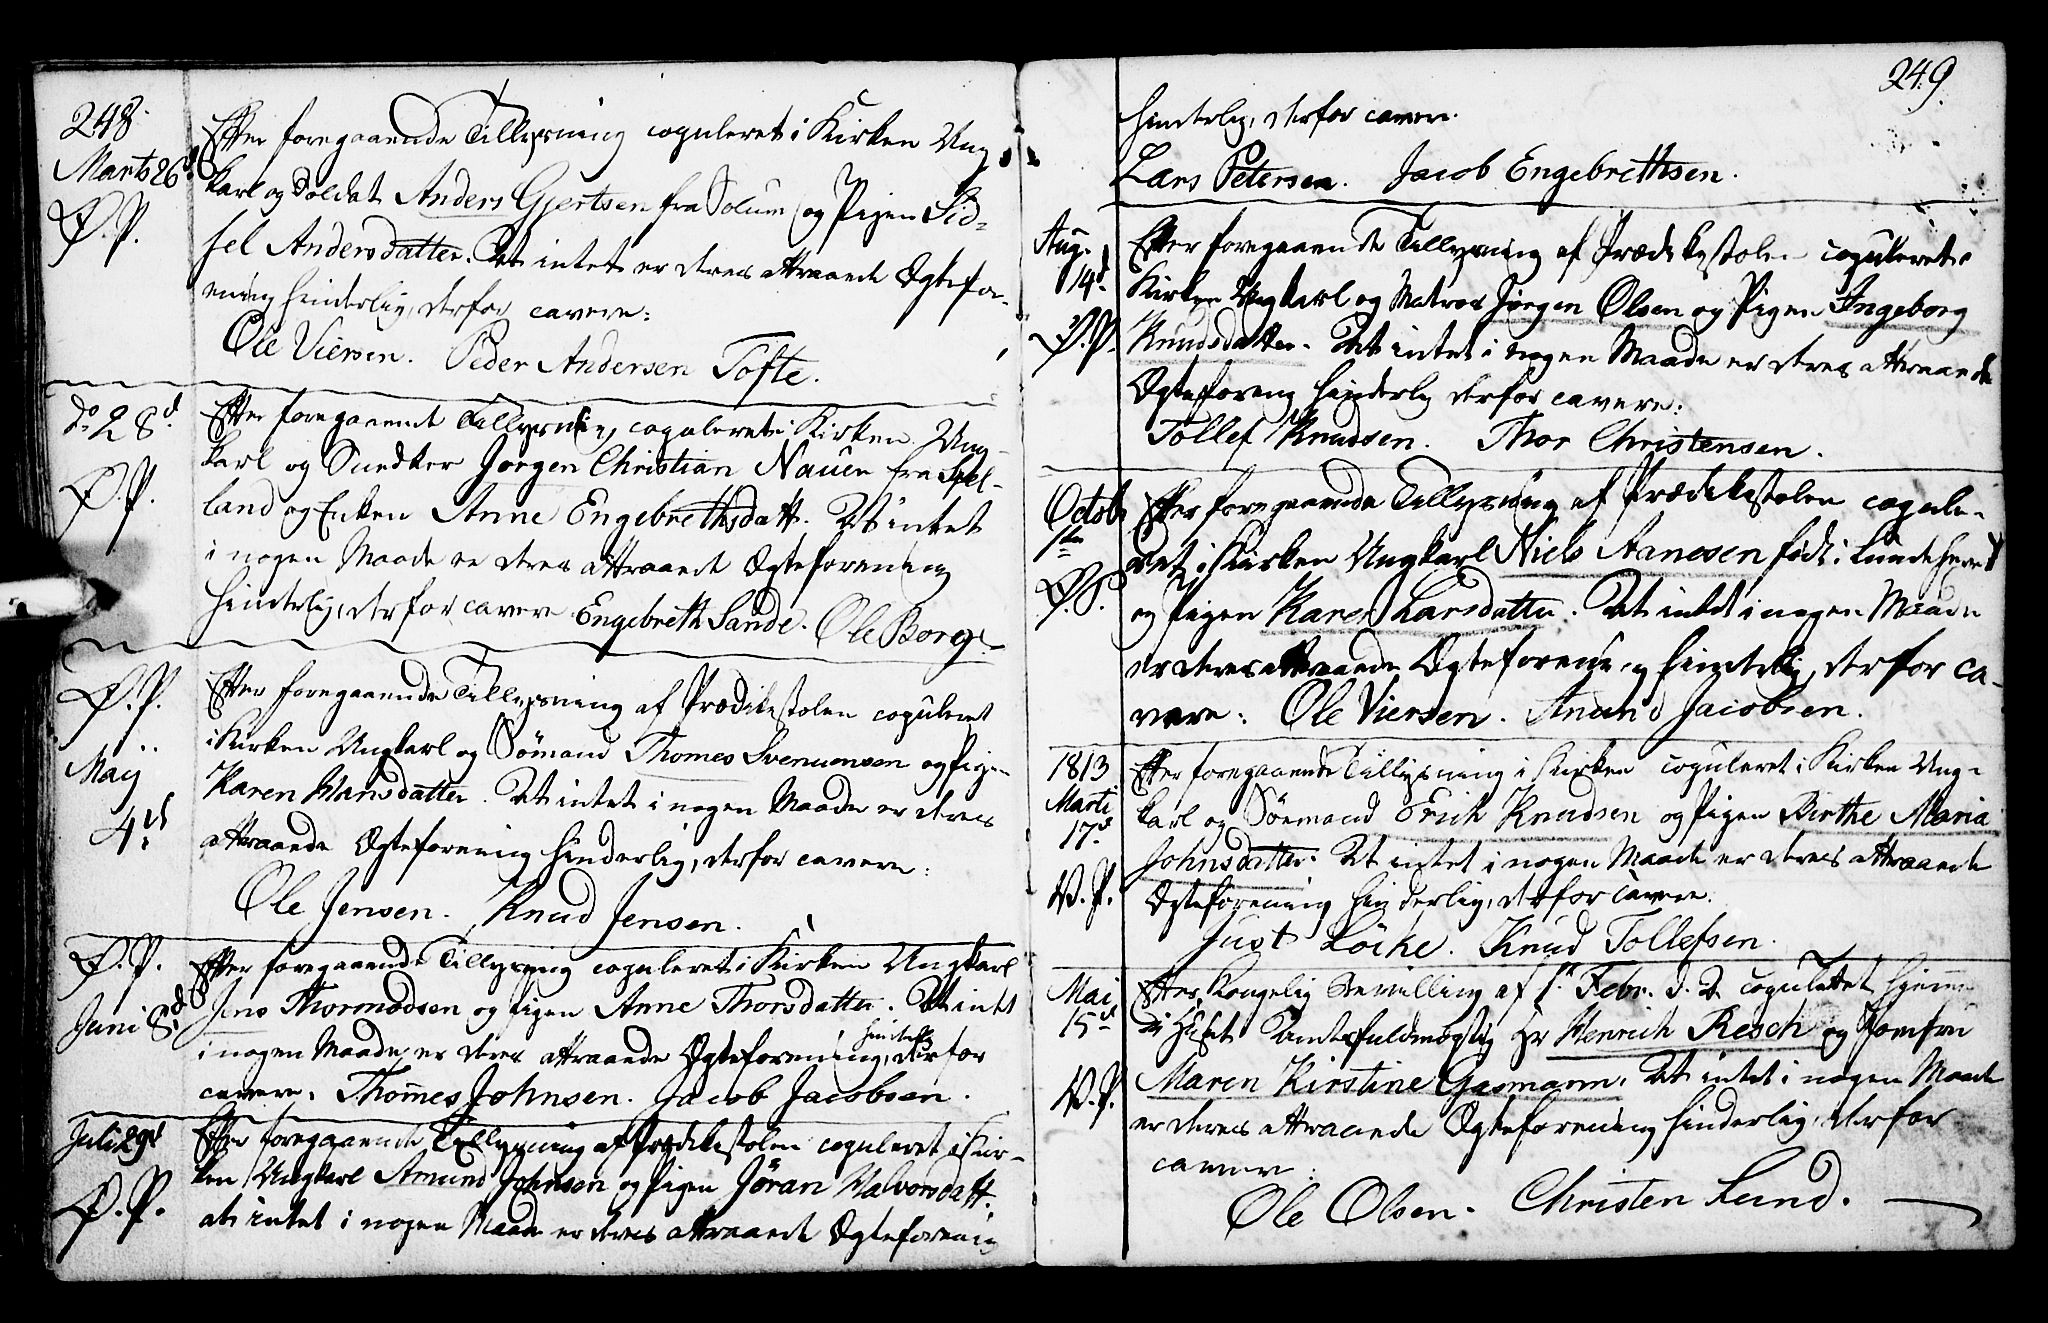 248.
Marts 26d
P. P.
Efter foregaaende Tillysning copuleret i Kirken Ung-
karl og Soldat Anders Gjertsen fra Solum og Pigen Sid-
sel Andersdatter. At intet er deres attraaede Ægtefor-
ening hinderlig, derfor cavere:
Ole Viersen. Peder Andersen Tofte.
do 28d.
P. P.
Efter foregaaende Tillysning copuleret i Kirken Ung-
karl og Snedker Jørgen Christian Nauen fra Sjel-
land og Enken Anne Engebrethsdatt. At intet
i nogen Maade er deres attraaede Ægteforening
hinderlig, derfor cavere Engebreth Sande. Ole Borge
P. P.
Maij
4d.
Efter foregaaende Tillysning af Prædikestolen copuleret
i Kirken Ungkarl og Sømand Thomes Svenuensen og Pigen
Karen Hansdatter. At intet i nogen Maade er deres
attraaede Ægteforening hinderlig, derfor cavere:
Ole Jensen. Knud Jensen.
P. P.
Juni 8d
Efter foregaaende Tillysning copuleret i Kirken Ungkarl
Jens Thormodsen og Pigen Anne Thorsdatter. At intet
i nogen Maade er deres attraaede Ægteforening hinderlig, derfor
cavere. Thom̄es Johnsen. Jacob Jacobsen.
Juli 29d
P. P.
Efter foregaaende Tillysning af Prædikestolen copuleret i Kir-
ken Ungkarl Amund Johnsen og Pigen Jöran Halvorsdatt.
at intet i nogen Maade er deres attraaede Ægteforening
249.
hinderlig, derfor cavere.
Lars Petersen. Jacob Engebrethsen.
Aug.
14d.
P. P.
Efter foregaaende Tillysning af Prædikestolen copuleret i
Kirken Ungkarl og Matros Jørgen Olsen og Pigen Ingeborg
Knudsdatter. At intet i nogen Maade er deres attraaede
Ægteforening hinderlig derfor cavere:
Tollef Knudsen. Thor Christensen.
Octob
1ste
P. P.
Efter foregaaende Tillysning af Prædikestolen copule-
ret i Kirken Ungkarl Niels Aanesen født i Lundeherret
og Pigen Karen Larsdatter. At intet i nogen Maade
er deres attraaede Ægteforening hinderlig, derfor ca-
vere: Ole Viersen. Anund Jacobsen.
1813
Marti
17d.
V. P.
Efter foregaaende Tillysning i Kirken copuleret i Kirken Ung-
karl og Sømand Erich Knudsen og Pigen Birthe Maria
Johnsdatter. At intet i nogen Maade er deres attraaede
Ægteforening hinderlig, derfor cavere.
Just Löcke. Knud Tollefsen.
Mai
15d
V. P.
Efter Kongelig Bevilling af 1. Febr. d. A. copulettet hjem̄e
i Huset Amtsfuldmægtig Hr Henrich Resch og Jomfru
Maren Kirstine Gasmann. At intet i nogen Maade
er deres attraaede Ægteforening hinderlig, derfor
cavere:
Ole Olsen. Christen Lund.